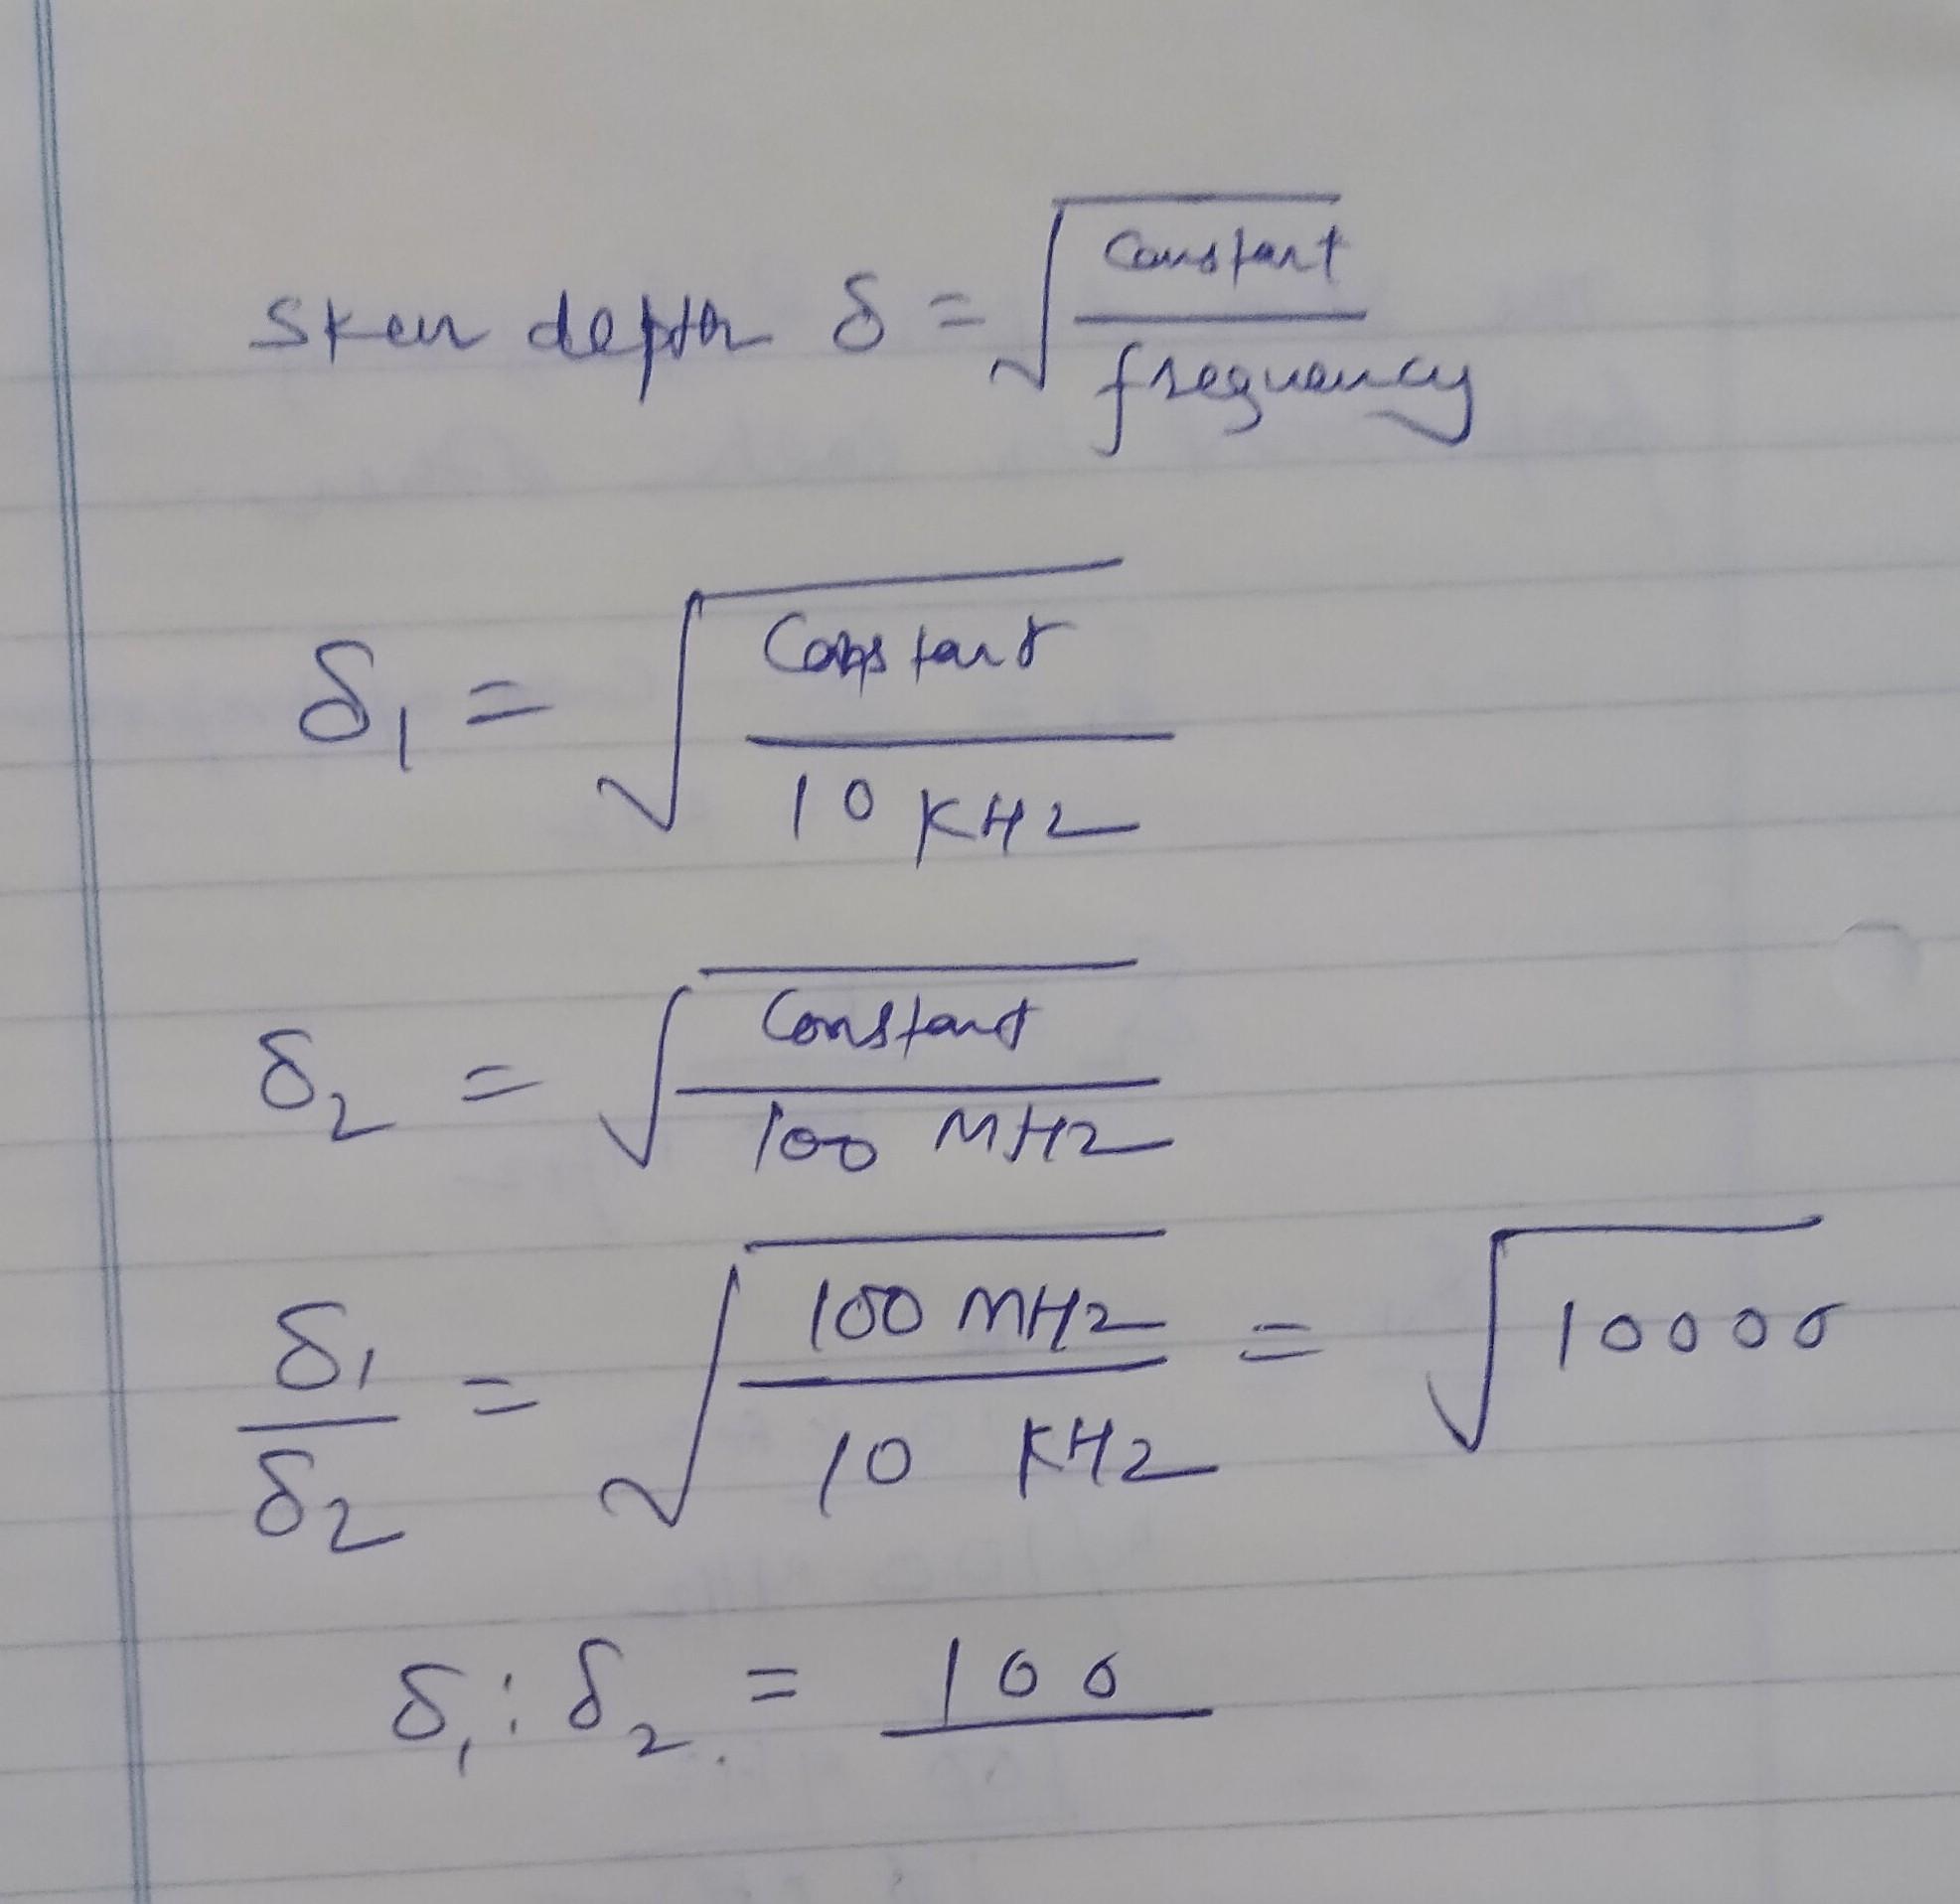 Skin depth δ = √(Constant / frequency)
δ₁ = √(Constant / 10 KHz)
δ₂ = √(Constant / 100 MHz)
δ₁ / δ₂ = √(100 MHz / 10 KHz) = √10000
δ₁ : δ₂ = 100